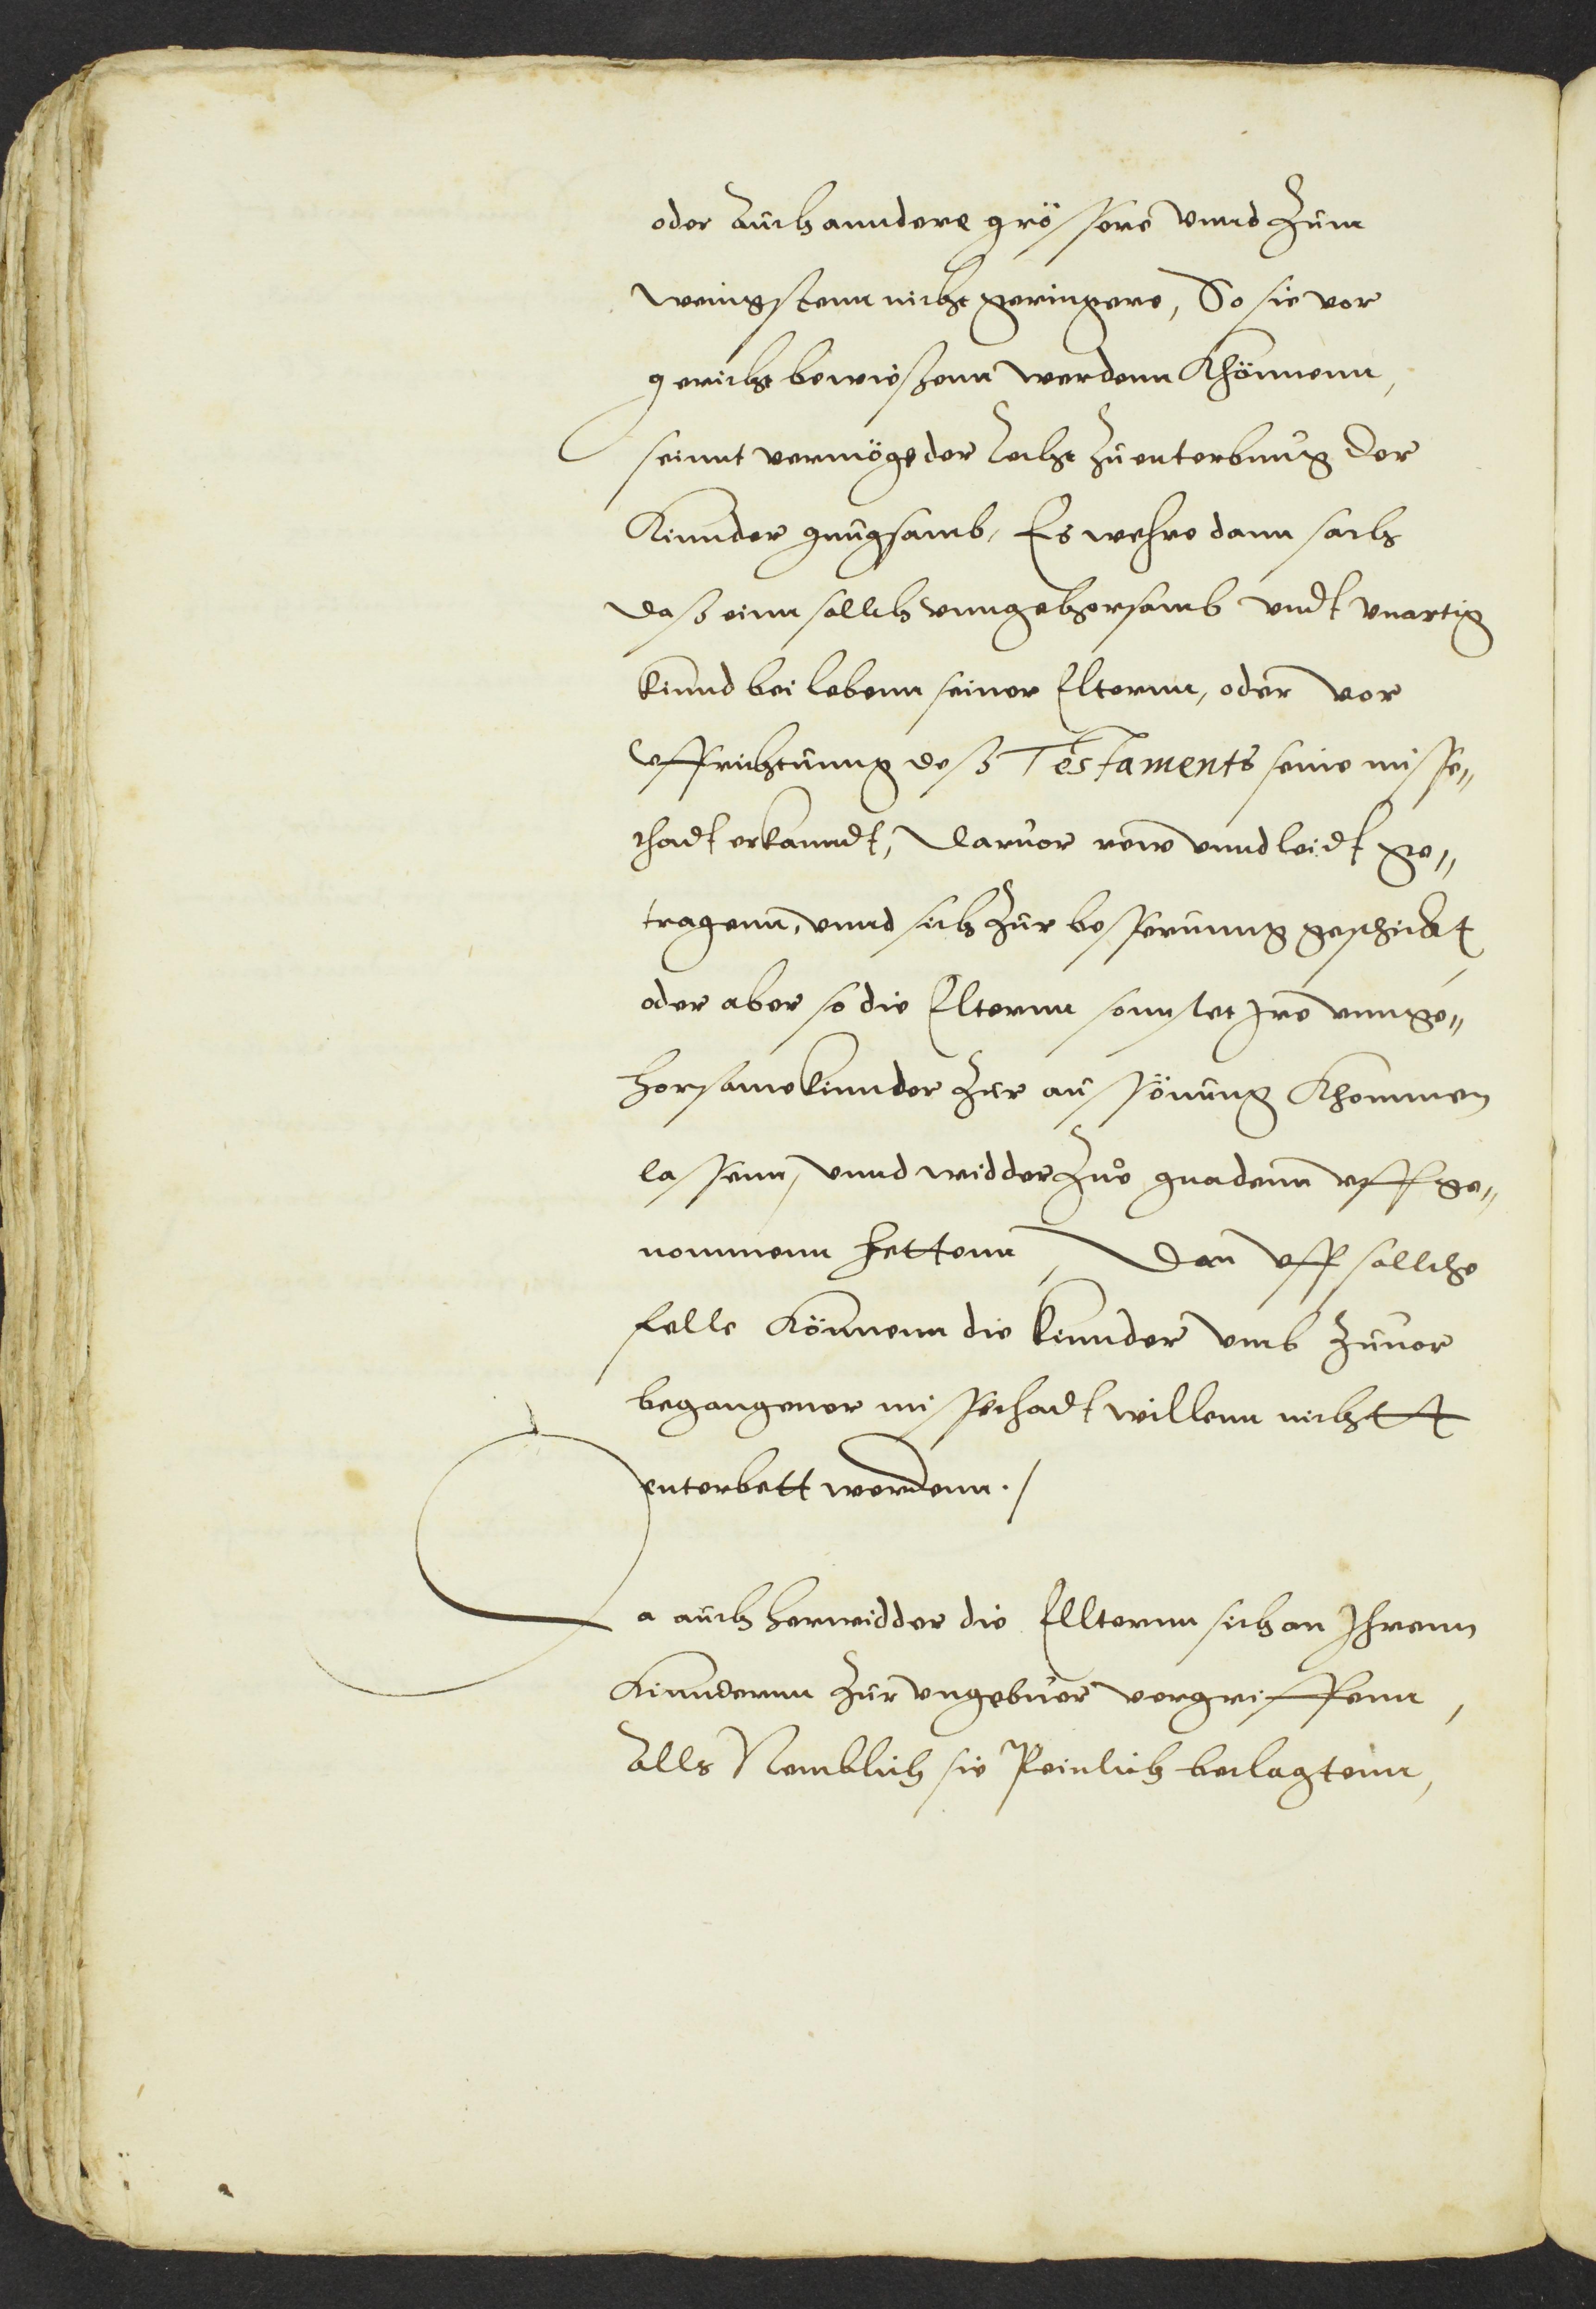 oder auch anndere grössere vnnd zum
wenigstenn nicht geringere, So sie vor
gericht bewießenn werdenn khönnenn,
seinnt vermöge der Recht zu enterbung der
Kinnder gnugsamb, Es wehre dann sach
daß einn sollch vnngehorsamb vndt vnartig
kinnd bei lebenn seiner Elternn, oder vor
vffrichtunng deß Testaments seine misse„
thadt erkanndt, daruor rew vnnd leidt ge„
tragenn, vnnd sich zur besserunng geschickt,
oder aber so die Elternn sonnstet Jre vnnge„
horsame kinnder zur aussönung khommen
lassenn, vnnd widder zuo gnadenn vffge„
nommenn hettenn, Dan vff sollche
felle könnenn die kinnder vmb zuuor
begangener missethadt willenn nichtt
enterbett werdenn./
Da auch herwidder die Elltternn sich an Jhrenn
Kinndernn zur vngebuer vergriffenn,
Alls Nemblich sie Peinlich beclagtenn,